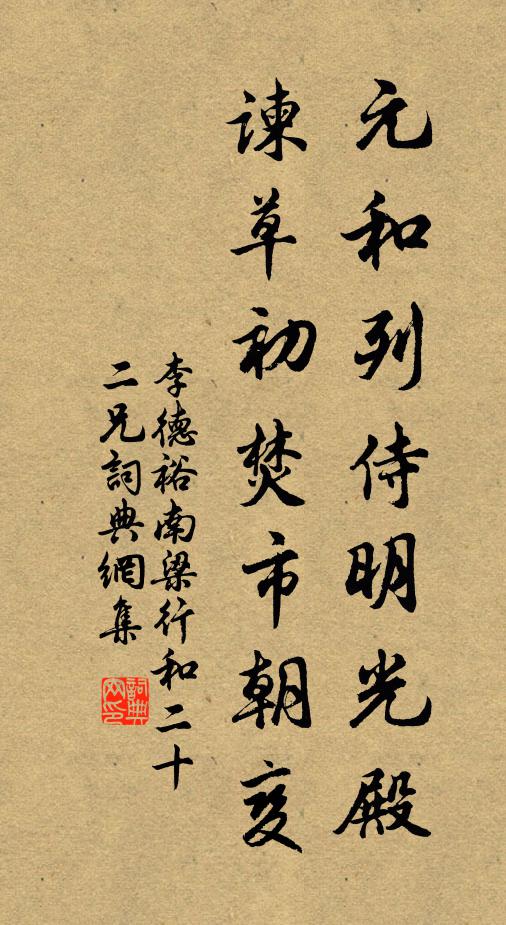 元和列侍明光殿
諫草初焚市朝变
李德裕南梁行和二十
二兄詞典網集
詞典网印